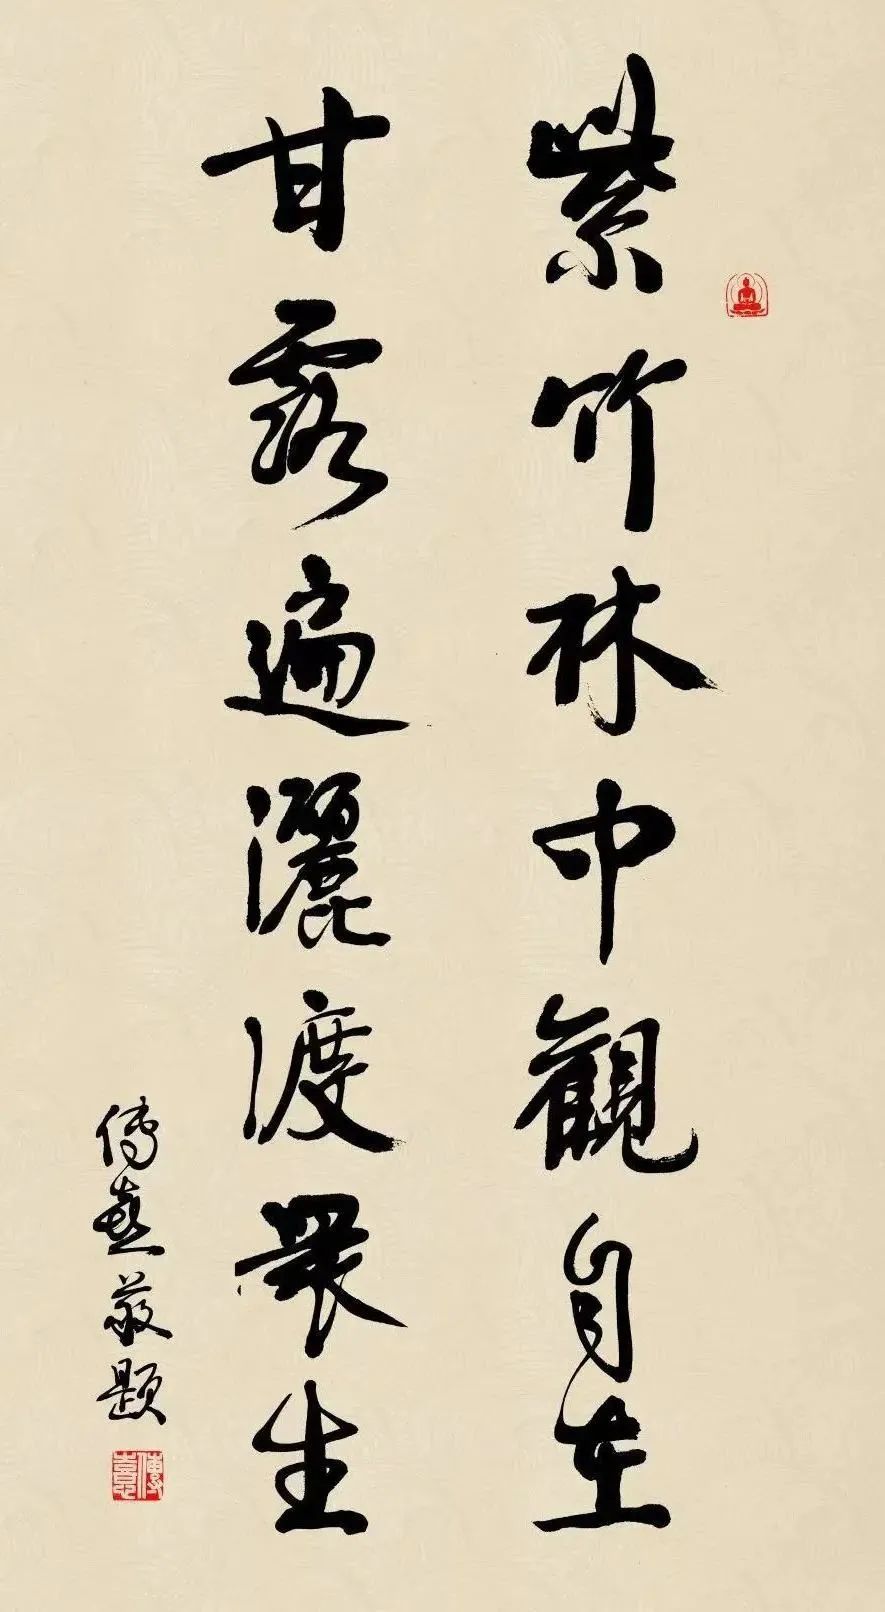 紫竹林中觀自在
甘露遍灑渡眾生
傳熹敬題
傳熹